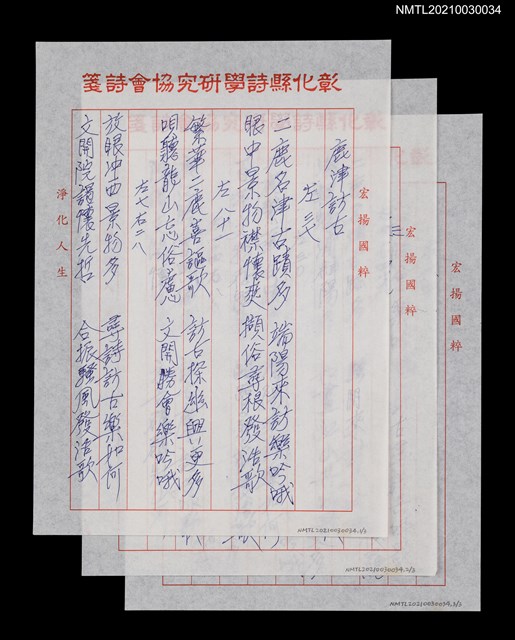 NMTL20210030034
彰化縣詩學研究協會詩箋
宏揚國粹
鹿津訪古
左三七
二鹿名津古蹟多 端陽來訪樂吟哦
眼中景物襟懷爽 擷俗尋根發浩歌
左八十一
繁華二鹿喜謳歌 訪古探幽興更多
唄聽龍山忘俗慮 文開勝會樂吟哦
左七右二八
放眼沖西景物多 尋詩訪古樂如何
文開院謁懷先哲 合振騷風發浩歌
淨化人生
NMTL20210030034.1/3
宏揚國粹
NMTL20210030034.2/3
宏揚國粹
NMTL20210030034.3/3